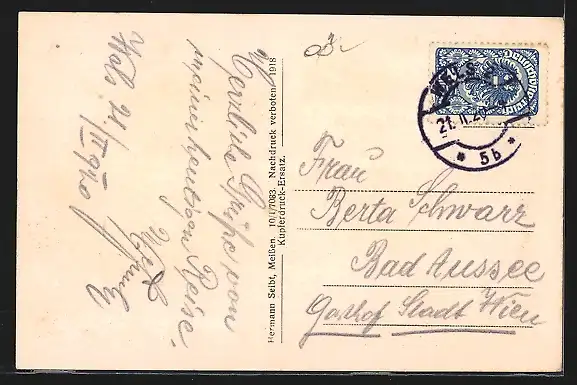 Wels 21/II 1920
Herzliche Grüße von
meiner heutigen Reise.
Hermann Seibt, Meißen. 10/I/7083. Nachdruck verboten. 1918
Kupferdruck-Ersatz.
Deutschösterreich
WELS
21.II.20
* 5b *
Frau
Berta Schwarz
Bad Aussee
Gasthof Stadt Wien